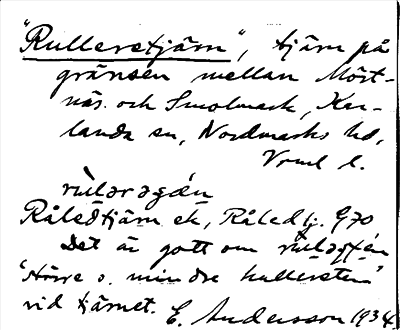 "Rullerstjärn", tjärn på
gränsen mellan Möst-
näs och Smolmark, Kar-
landa sn, Nordmarks hd,
Vrml l.
Råledtjärn ek, Råledtj. G70
Det är gott om
"större o. mindre kullersten"
vid tjärnet. E. Andersson 1934